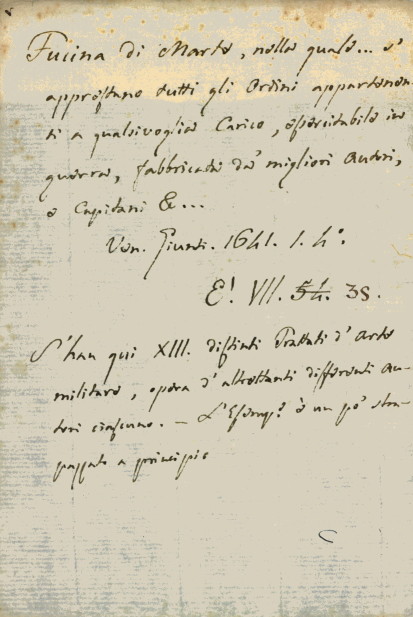 Fucina di Marte, nella quale... s'
apprestano tutti gli Ordini appartenen-
ti a qualsivoglia Carico, esercitabile in
guerra, fabbricata da' migliori Autori,
e Capitani &...
Ven. Giunti. 1641. 1. 4°.
E'. VII. 54. 38.
S'han qui XIII. distinti Trattati d'Arte
militare, opera d'altrettanti differenti Au-
tori ciascuno. – L'Esemp.e è un po' stra-
pazzato a principio